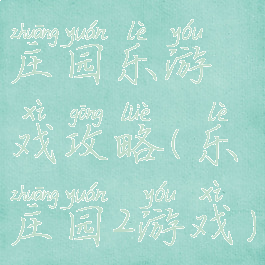 zhuāng yuán lè yóu
庄园乐游
xì gōng lüè lè
戏攻略(乐
zhuāng yuán yóu xì
庄园2游戏)